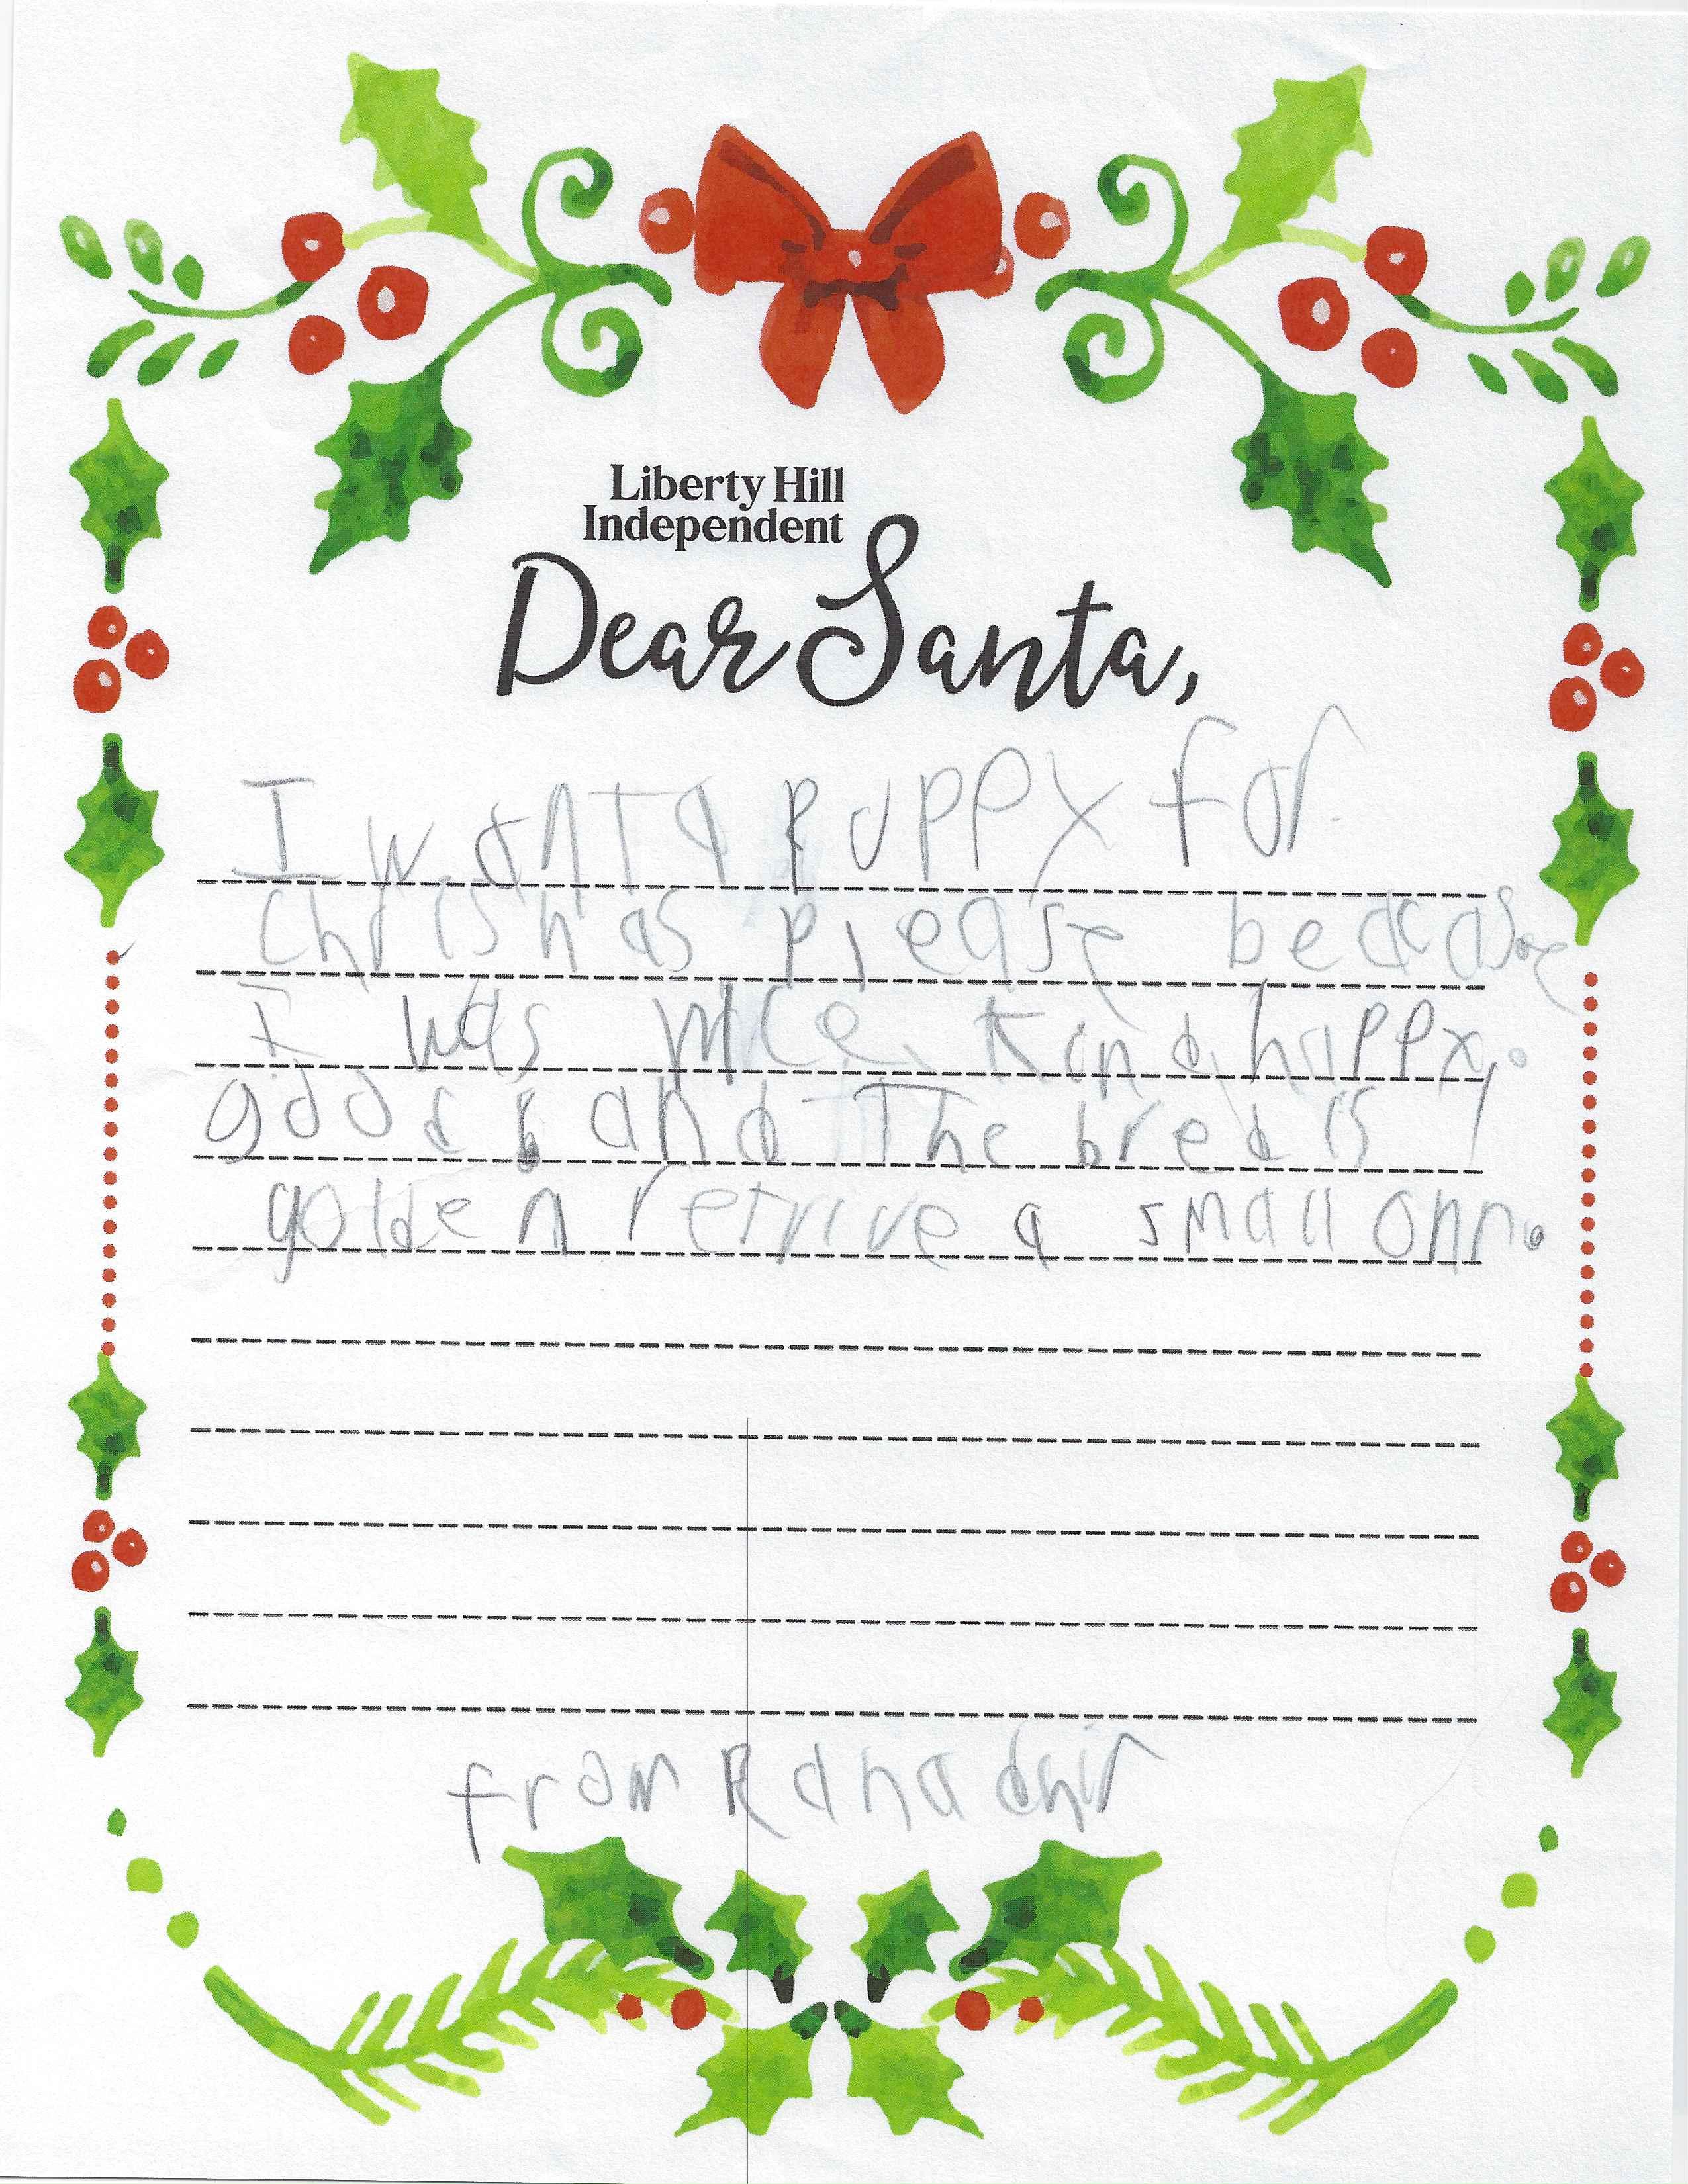 Liberty Hill
Independent
Dear Santa,
I want a puppy for
Chrishas please beacase
I was nice, kind, happy,
good, and The bred is
golden retrive a small onn.
from Ranadhir